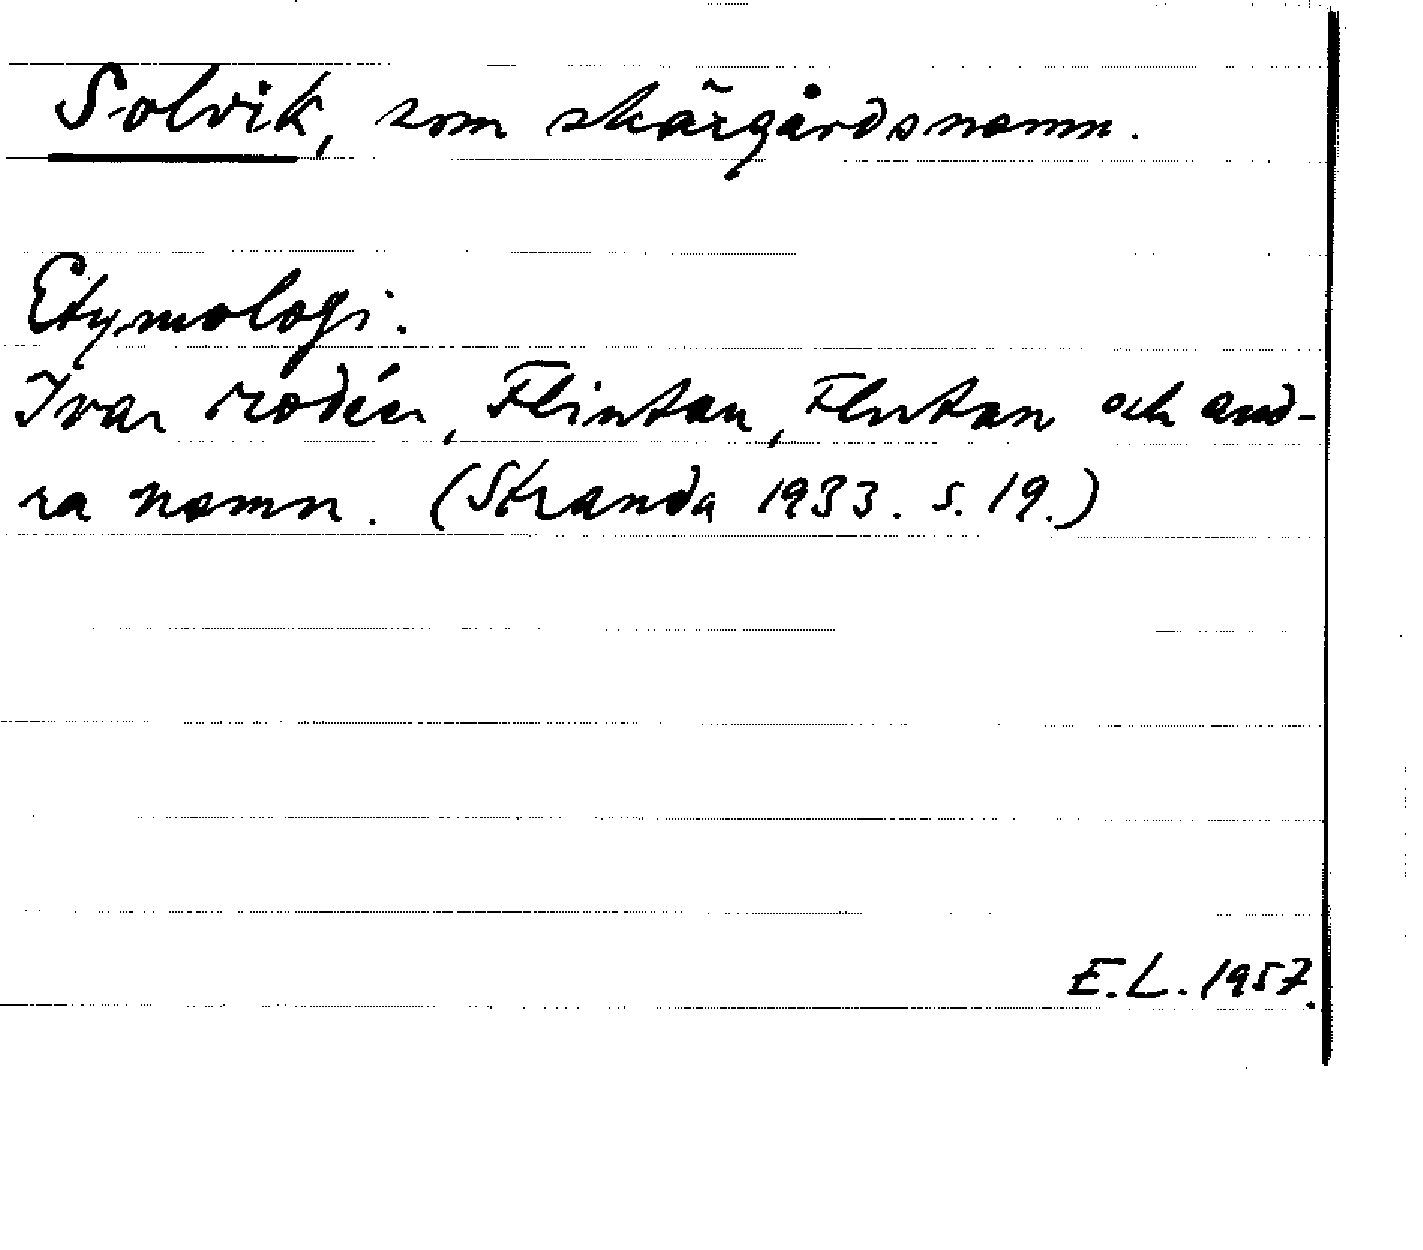 Solvik, som skärgårdsnamn.
Etymologi.
Ivar Modéer, Flintan, Flutan och and-
ra namn. (Stranda 1933. s. 19.)
E.L. 1957.